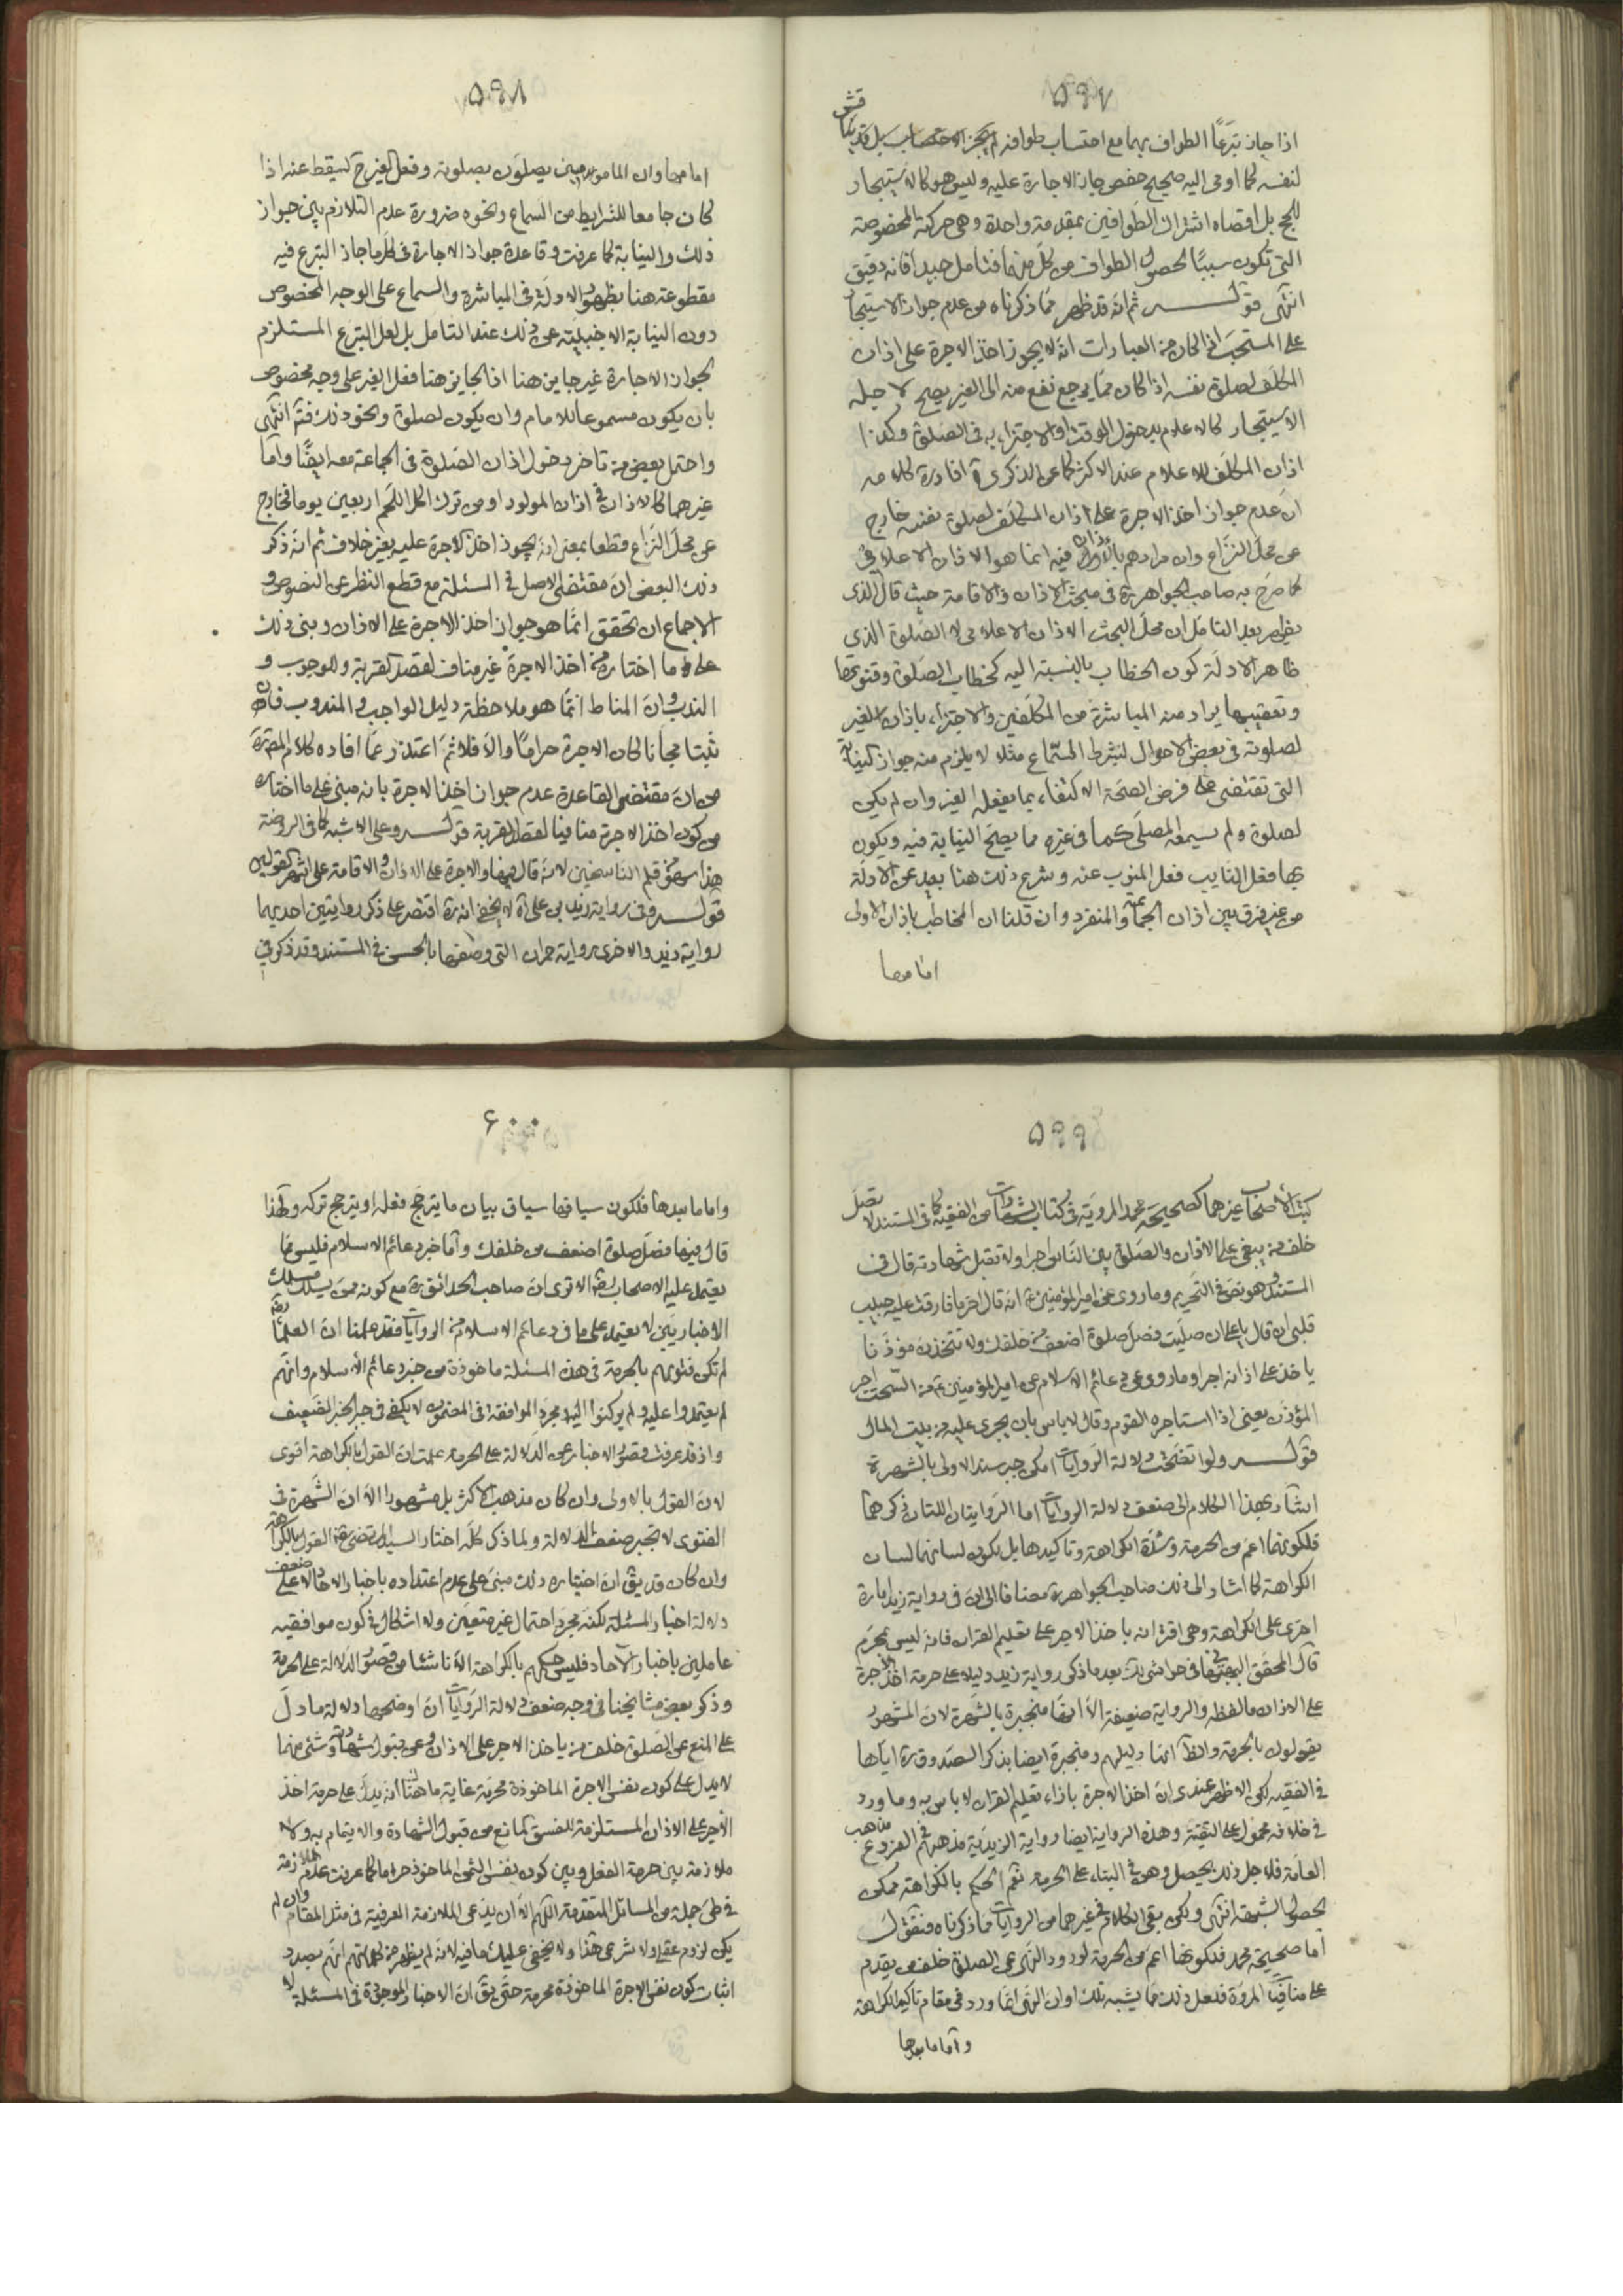 ۵۹۷
اذا جاز تبرّعاً الطواف بهما مع احتساب طوافه لم يجز الاحتساب بل قد يناقش
لنفسه كما اومى اليه صحيح حفص جاز الاجارة عليه وليس هو كالاستيجار
للحج بل اقصاه اشتراك الطوافين بمقدمة واحدة وهى حركته المخصوصة
التى تكون سببًا لحصول الطواف من كلّ منهما فتامل جيدا فانه دقيق
انتهى قوله ثم انه قد ظهر ممّا ذكرناه من عدم جواز الاستيجار
على المستحبّ اذا كان من العبادات انّه لا يجوز اخذ الاجرة على اذان
المكلّف لصلوة نفسه اذا كان ممّا يرجع نفع منه الى الغير يصحّ لاجله
الاستيجار كالاعلام بدخول الوقت او الاجتزاء به فى الصّلوة وكذا
اذان المكلّف للاعلام عند الاكثر كما عن الذكرى افاد ره كلامه
انّ عدم جواز اخذ الاجرة على اذان المكلّف لصلوة نفسه خارج
عن محلّ النّزاع وان مرادهم بالاذان فيه انما هو الاذان الاعلامى
كما صرّح به صاحب الجواهر ره فى مبحث الاذان والاقامة حيث قال الذى
يظهر بعد التامّل ان محلّ البحث الاذان الاعلامى لا الصّلوة الذى
ظاهر الادلّة كون الخطاب بالنسبة اليه كخطاب الصّلوة وقنوتها
وتعقيبها يراد منه المباشرة من المكلّفين والاجتزاء باذان الغير
لصلوته فى بعض الاحوال لشرط السّماع مثلا لا يلزم منه جواز النيابة
التى تقتضى على فرض الصحّة الاكتفاء بما يفعله الغير وان لم يكن
لصلوة ولم يسمعه المصلّى كما فى غيره مما يصحّ النيابة فيه ويكون
بها فعل النايب فعل المنوب عنه وشرع ذلك هنا بعيد عن الادلّة
من غير فرق بين اذان الجماعة والمنفرد وان قلنا ان المخاطب باذان الاولى
امامها
۵۹۸
امامها وان المامومين يصلّون بصلوته وفعل الغير ح يسقط عنه اذا
كان جامعا للشرايط من السماع ونحوه ضرورة عدم التلازم بين جواز
ذلك والنيابة كما عرفت وقاعدة جواز الاجارة فى كلّ ما جاز التبرع فيه
مقطوعة هنا بظهور الادلّة فى المباشرة والسماع على الوجه المخصوص
دون النيابة الاجنبيّة عن ذلك عند التامل بل لعل التبرّع المستلزم
لجواز الاجارة غير جايز هنا اذ الجايز هنا فعل الغير على وجه مخصوص
بان يكون مسموعا للامام وان يكون لصلوة ونحو ذلك فتم انتهى
واحتمل بعض من تاخر دخول اذان الصّلوة فى الجماعة معه ايضًا وامّا
غيرهما كالاذان فى اذان المولود او من ترك اكل اللّحم اربعين يوما فخارج
عن محلّ النّزاع قطعا بمعنى انّه يجوز اخذ الاجرة عليه بغير خلاف ثم انّه ذكر
ذلك البعض انّ مقتضى الاصل فى المسئلة مع قطع النظر عن النصوص و
الاجماع ان تحقق انّما هو جواز اخذ الاجرة على الاذان وبنى ذلك
على ما اختاره من اخذ الاجرة غير مناف لقصد القربة وللوجوب و
الندب وانّ المناط انّما هو ملاحظة دليل الواجب والمندوب فان
ثبتا مجانا لكان الاجرة حرامًا والّا فلا ثمّ اعتذر عمّا افاده كلام المص ره
من انّ مقتضى القاعدة عدم جواز اخذ الاجرة بانه مبنى على ما اختاره
من كون اخذ الاجرة منافيا لقصد القربة قوله وعلى الاشبه كما فى الروضة
هذا سهو من قلم النّاسخين لانّه قال فيها والاجرة على الاذان والاقامة على اشهر القولين
قوله وفى رواية زيد بن على ع لا يخفى انه ره اقتصر على ذكر روايتين احديهما
رواية زيد والاخرى رواية حمران التى وصفها بالحسن فى المستند وقد ذكر فى
۵۹۹
كتب الاصحاب غيرهما كصحيحة محمد المرويّة فى كتاب الشهادات من الفقيه كما فى المستند لا تصلّ
خلف من يبغى على الاذان والصّلوة بين النّاس اجرا ولا تقبل شهادته قال فى
المستند وهو نصّ فى التحريم وما روى عن امير المؤمنين ع انه قال اخر ما فارقت عليه حبيب
قلبى ان قال يا على ان صلّيت فصلّ صلوة اضعف من خلفك ولا تتخذنّ مؤذّنا
ياخذ على اذانه اجرا وما روى عن دعائم الاسلام عن امير المؤمنين ع من السّحت اجر
المؤذّن يعنى اذا استاجره القوم وقال لا باس بان يجرى عليه من بيت المال
قوله ولو اتضحت دلالة الرّوايات امكن جبر سند الاولى بالشهرة
اشار بهذا الكلام الى ضعف دلالة الروايات امّا الرّوايتان اللتان ذكرهما
فلكونهما اعمّ من الحرمة وشدّة الكراهة وتاكيدها بل يكون لسانهما لسان
الكراهة كما اشار الى ذلك صاحب الجواهر ره مضافا الى انّ فى رواية زيد امارة
اخرى على الكراهة وهى اقترانه باخذ الاجر على تعليم القران فانه ليس بمحرّم
قال المحقق فى حواشى لك بعد ما ذكر رواية زيد دليلا على حرمة اخذ الاجرة
على الاذان ما لفظه والرواية ضعيفة الّا انها منجبرة بالشّهرة لانّ المشهور
يقولون بالحرمة والظّ انها دليلهم ومنجبرة ايضا بذكر الصدوق ره ايّاها
فى الفقيه لكن الاظهر عندى انّ اخذ الاجرة بازاء تعليم القران لا باس به وما ورد
فى خلافه محمول على التقيّة وهذه الرواية ايضا رواية الزيديّة مذهبهم فى الفروع مذهب
العامّة فلاجل ذلك يحصل وهن فى البناء على الحرمة نعم الحكم بالكراهة ممكن
لحصول الشبهة انتهى ولكن بقى الكلام فى غيرهما من الروايات ما ذكرناه فنقول
امّا صحيحة محمد فلكونها اعمّ من الحرمة لورود النّهى عن الصلوة خلف من يقدم
على منافيات المروّة فلعل ذلك ممّا يشبه تلك او ان النّهى انما ورد فى مقام تاكيد الكراهة
وامّا ما بعدها
۶۰۰
وامّا ما بعدها فلكون سياقها سياق بيان ما يترجّح فعله او يترجح تركه ولهذا
قال فيها فصلّ صلوة اضعف من خلفك وامّا خبر دعائم الاسلام فليس ممّا
يعتمد عليه الاصحاب الا ترى انّ صاحب الحدائق ره مع كونه ممّن يسلك مسلك
الاخباريّين لا يعتمد على ما فى دعائم الاسلام من الروايات فقد علمنا انّ العلماء
لم تكن فتويهم بالحرمة فى هذه المسئلة ماخوذة من خبر دعائم الاسلام وانّهم
لم يعتمدوا عليه ولم يركنوا اليه ومجرد الموافقة فى المضمون لا يكفى فى جبر الخبر الضعيف
واذ قد عرفت قصور الاخبار عن الدلالة على الحرمة علمت انّ القول بالكراهة اقوى
لانّ القول بالاولى وان كان مذهب الاكثر بل مشهورا الّا انّ الشّهرة فى
الفتوى لا تجبر ضعف الدلالة ولما ذكر كلّه اختار السيد المرتضى ره القول بالكراهة
وان كان قد يق انّ اختياره ذلك مبنىّ على عدم اعتداده باخبار الاحاد لا على ضعف
دلالة اخبار المسئلة لكنّه مجرّد احتمال غير متعيّن ولا اشكال فى كون موافقيه
عاملين باخبار الآحاد فليس حكمهم بالكراهة الّا ناشئا من قصور الدّلالة على الحرمة
وذكر بعض مشايخنا فى وجه ضعف دلالة الرّوايات انّ اوضحها دلالة ما دلّ
على المنع عن الصّلوة خلف من ياخذ الاجر على الاذان وعن قبول شهادته وشئ منهما
لا يدلّ على كون نفس الاجرة الماخوذة محرّمة غاية ما هناك انه يدلّ على حرمة اخذ
الاجر على الاذان المستلزمة للفسق المانع من قبول الشهادة والايتمام به ولا
ملازمة بين حرمة الفعل وبين كون نفس الشئ الماخوذ حراما كما عرفت عدم الملازمة
فى طىّ جملة من المسائل المتقدمة اللّهم الّا ان يدّعى الملازمة العرفية فى مثل المقام وان لم
يكن لزوم عقلى ولا شرعى هذا ولا يخفى عليك ما فيه لانّه لم يظهر من كلماتهم انّهم بصدد
اثبات كون نفس الاجرة الماخوذة محرمة حتّى يقّ انّ الاخبار الموجودة فى المسئلة لا